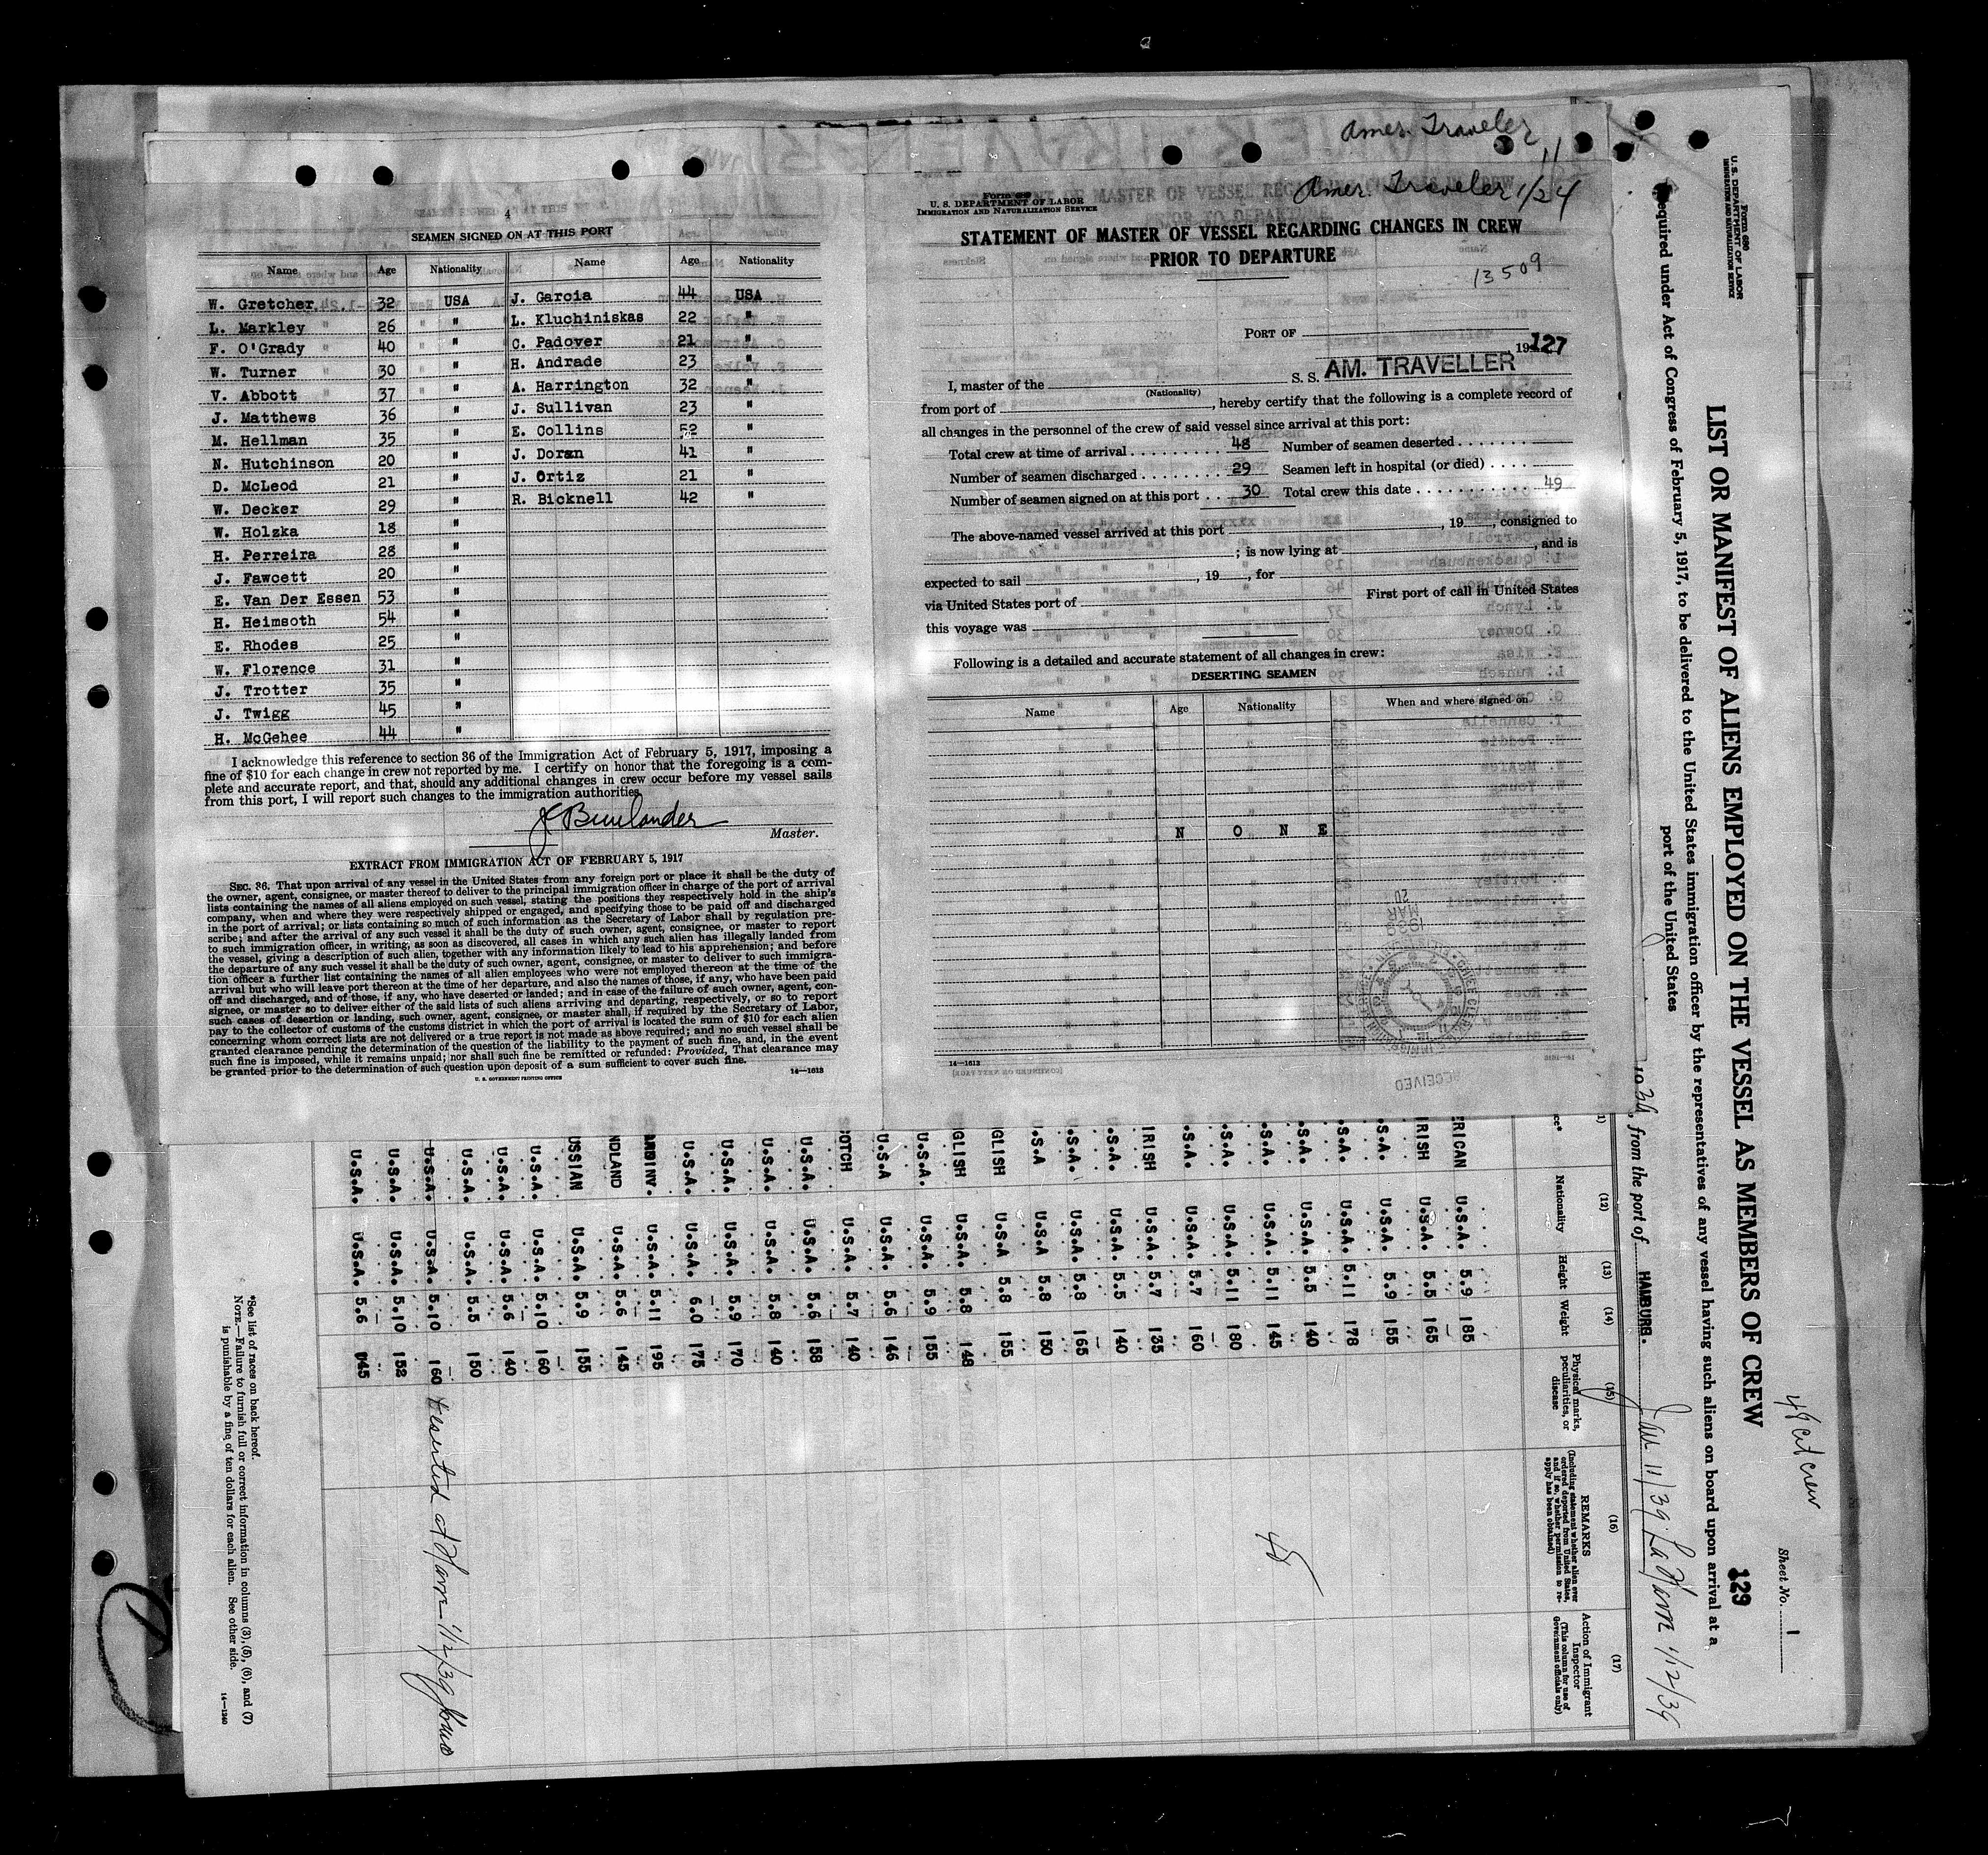 Amer. Traveler
4
SEAMEN SIGNED ON AT THIS PORT
Name Age Nationality Name Age Nationality
W. Gretcher. 32 USA J. Garcia 44 USA
L. Markley 26 " L. Kluchiniskas 22 "
F. O'Grady 40 " C. Padover 21 "
W. Turner 30 " H. Andrade 23 "
V. Abbott 37 " A. Harrington 32 "
J. Matthews 36 " J. Sullivan 23 "
M. Hellman 35 " E. Collins 52 "
N. Hutchinson 20 " J. Doran 41 "
D. McLeod 21 " J. Ortiz 21 "
W. Decker 29 " R. Bicknell 42 "
W. Holzka 18 "
H. Perreira 28 "
J. Fawcett 20 "
E. Van Der Essen 53 "
H. Heimsoth 54 "
E. Rhodes 25 "
W. Florence 31 "
J. Trotter 35 "
J. Twigg 45 "
H. McGehee 44 "
I acknowledge this reference to section 36 of the Immigration Act of February 5, 1917, imposing a
fine of $10 for each change in crew not reported by me. I certify on honor that the foregoing is a com-
plete and accurate report, and that, should any additional changes in crew occur before my vessel sails
from this port, I will report such changes to the immigration authorities.
Master.
EXTRACT FROM IMMIGRATION ACT OF FEBRUARY 5, 1917
SEC. 36. That upon arrival of any vessel in the United States from any foreign port or place it shall be the duty of
the owner, agent, consignee, or master thereof to deliver to the principal immigration officer in charge of the port of arrival
lists containing the names of all aliens employed on such vessel, stating the positions they respectively hold in the ship's
company, when and where they were respectively shipped or engaged, and specifying those to be paid off and discharged
in the port of arrival; or lists containing so much of such information as the Secretary of Labor shall by regulation pre-
scribe; and after the arrival of any such vessel it shall be the duty of such owner, agent, consignee, or master to report
to such immigration officer, in writing, as soon as discovered, all cases in which any such alien has illegally landed from
the vessel, giving a description of such alien, together with any information likely to lead to his apprehension; and before
the departure of any such vessel it shall be the duty of such owner, agent, consignee, or master to deliver to such immigra-
tion officer a further list containing the names of all alien employees who were not employed thereon at the time of the
arrival but who will leave port thereon at the time of her departure, and also the names of those, if any, who have been paid
off and discharged, and of those, if any, who have deserted or landed; and in case of the failure of such owner, agent, con-
signee, or master so to deliver either of the said lists of such aliens arriving and departing, respectively, or so to report
such cases of desertion or landing, such owner, agent, consignee, or master shall, if required by the Secretary of Labor,
pay to the collector of customs of the customs district in which the port of arrival is located the sum of $10 for each alien
concerning whom correct lists are not delivered or a true report is not made as above required; and no such vessel shall be
granted clearance pending the determination of the question of the liability to the payment of such fine, and, in the event
such fine is imposed, while it remains unpaid; nor shall such fine be remitted or refunded: Provided, That clearance may
be granted prior to the determination of such question upon deposit of a sum sufficient to cover such fine.
U. S. GOVERNMENT PRINTING OFFICE 14—1613
Amer. Traveler 1/24
U. S. DEPARTMENT OF LABOR
IMMIGRATION AND NATURALIZATION SERVICE
STATEMENT OF MASTER OF VESSEL REGARDING CHANGES IN CREW
PRIOR TO DEPARTURE
13509
PORT OF
, 19 127
I, master of the S. S. AM. TRAVELLER
(Nationality)
from port of , hereby certify that the following is a complete record of
all changes in the personnel of the crew of said vessel since arrival at this port:
Total crew at time of arrival 48 Number of seamen deserted
Number of seamen discharged 29 Seamen left in hospital (or died)
Number of seamen signed on at this port 30 Total crew this date 49
The above-named vessel arrived at this port , 19 , consigned to
; is now lying at , and is
expected to sail , 19 , for
via United States port of First port of call in United States
this voyage was
Following is a detailed and accurate statement of all changes in crew:
DESERTING SEAMEN
Name Age Nationality When and where signed on
N O N E
14—1613
Form 680
U. S. DEPARTMENT OF LABOR
IMMIGRATION AND NATURALIZATION SERVICE
48 cit crew
Sheet No. 1
LIST OR MANIFEST OF ALIENS EMPLOYED ON THE VESSEL AS MEMBERS OF CREW 129
Required under Act of Congress of February 5, 1917, to be delivered to the United States immigration officer by the representatives of any vessel having such aliens on board upon arrival at a
port of the United States
1939, from the port of HAMBURG. Jan 11/39. La Havre 1/12/39
(12) (13) (14) (15) (16) (17)
Nationality Height Weight Physical marks, peculiarities, or disease
REMARKS
(Including statement whether alien ever ordered deported from United States, and if so, whether permission to re-apply has been obtained)
Action of Immigrant Inspector
(This column for use of Government officials only)
ERICAN U.S.A. 5.9 185
RISH U.S.A. 5.5 165
.S.A. U.S.A. 5.9 155
.S.A. U.S.A. 5.11 178
.S.A. U.S.A. 5.5 140
.S.A. U.S.A. 5.11 145
.S.A. U.S.A. 5.11 180
.S.A. U.S.A. 5.7 160
IRISH U.S.A. 5.7 135
.S.A. U.S.A. 5.5 140
.S.A. U.S.A. 5.8 165
.S.A U.S.A 5.8 150
GLISH U.S.A 5.8 155
GLISH U.S.A. 5.8 148
U.S.A. U.S.A. 5.9 155
U.S.A U.S.A. 5.6 146
COTCH U.S.A. 5.7 140
U.S.A. U.S.A. 5.6 158
U.S.A. U.S.A. 5.8 140
U.S.A. U.S.A. 5.9 170
U.S.A. U.S.A. 6.0 175
ANDINV. U.S.A. 5.11 195
NDLAND U.S.A. 5.6 145
USSIAN U.S.A. 5.9 155
U.S.A. U.S.A. 5.10 160
U.S.A. U.S.A. 5.6 140
U.S.A. U.S.A. 5.5 150
U.S.A. U.S.A. 5.10 160 Deserted at Havre 1/12/39
U.S.A. U.S.A. 5.10 152
U.S.A. U.S.A. 5.6 145
48
*See list of races on back hereof.
NOTE.—Failure to furnish full or correct information in columns (3), (5), (6), and (7)
is punishable by a fine of ten dollars for each alien. See other side.
14—1240